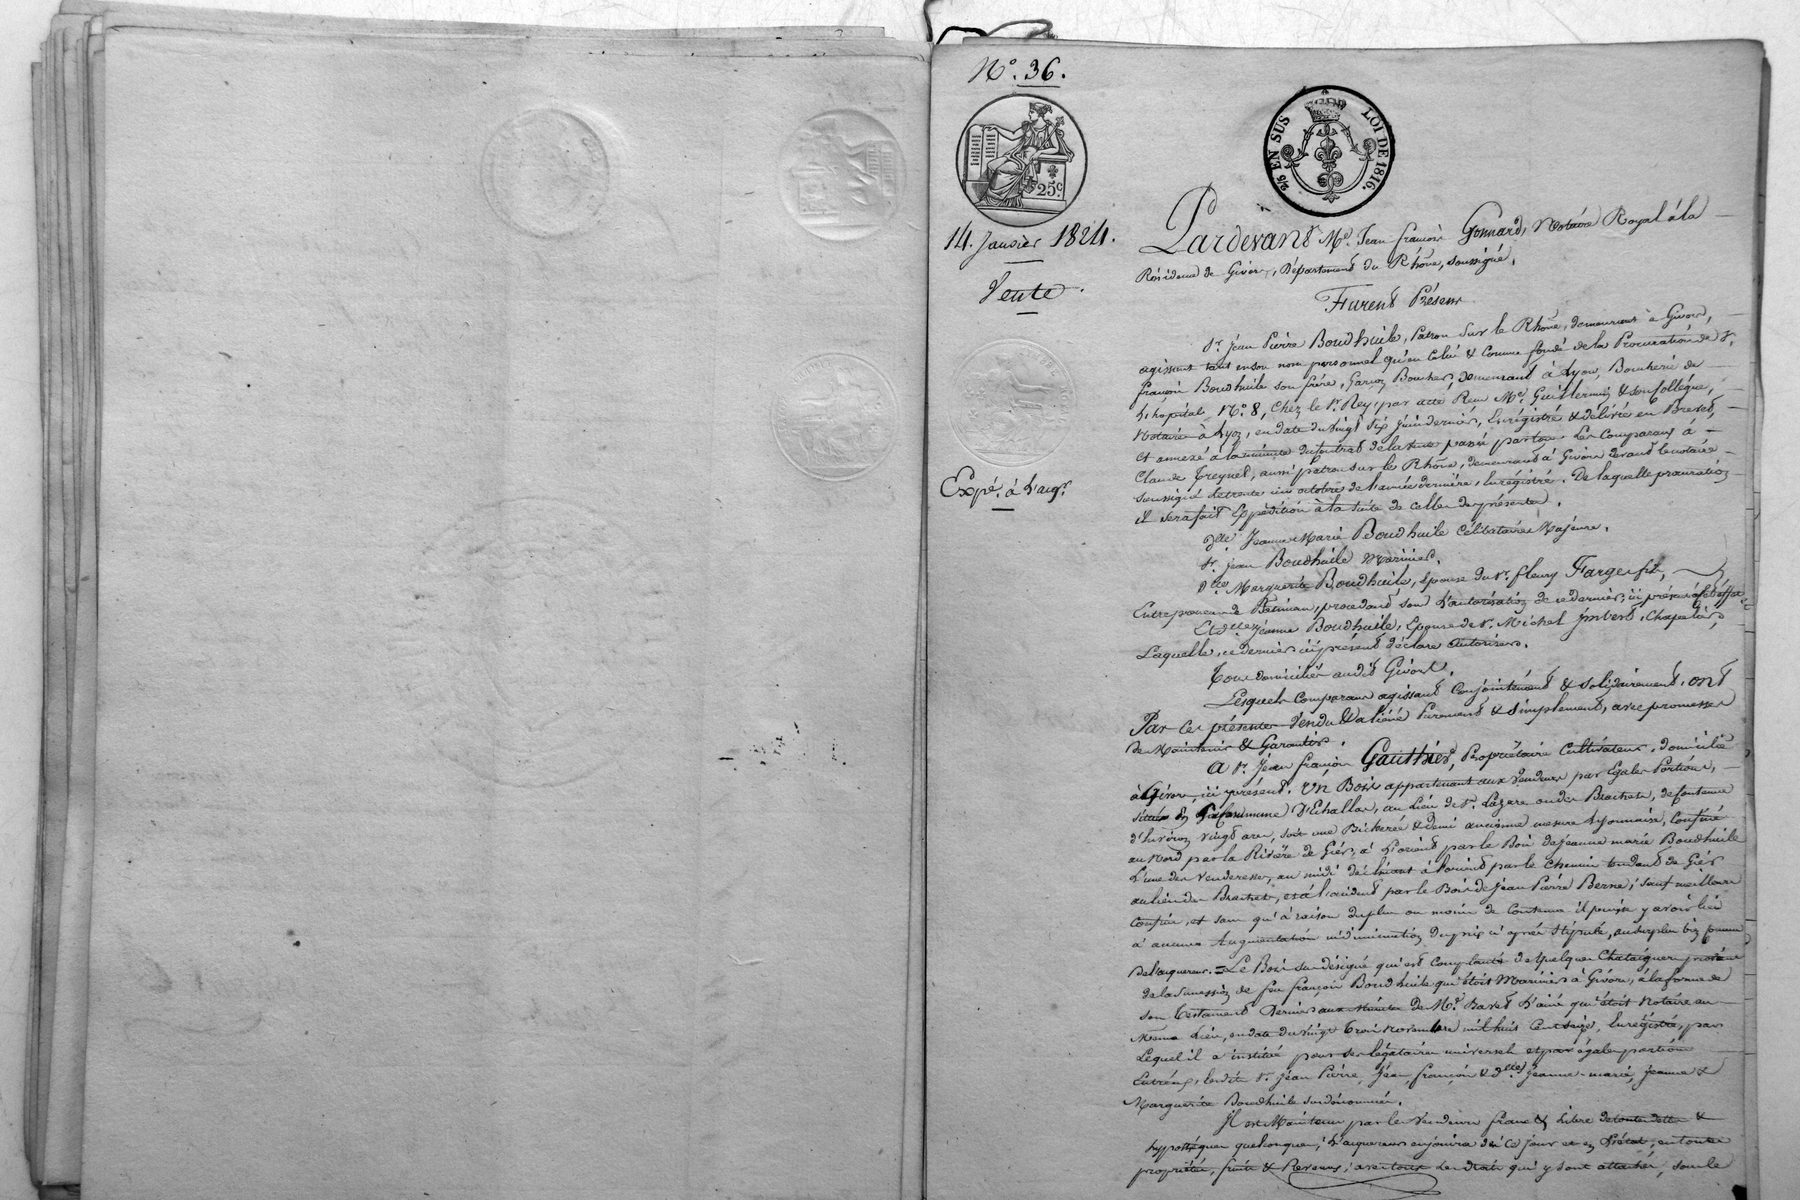 N.° 36.
25c
2/5 EN SUS LOI DE 1816.
14. Janvier 1824.
Vente
Expé. à l'aqr.
Pardevant Me. Jean françois Gonnard, Notaire Royal à la
Résidence de Givors, Département du Rhône, soussigné.
Furent Présens
Sr. Jean Pierre Boudhuile, Patron sur le Rhône, demeurant à Givors,
agissant tant en son nom personnel qu'en celui & comme fondé de la Procuration de Sr.
françois Boudhuile son frère, Garçon Boucher, demeurant à Lyon, Boucherie de
L'hopital N.° 8, chez le Sr. Rey, par acte Reçu Me. Guillermin & son collégue,
Notaire à Lyon, en date du vingt six juin dernier, Enrégistré & délivré en Brevet,
et annexé à la minute du contrat de la vente passé par tous les comparans à
Claude Freynet, aussi patron sur le Rhône, demeurant à Givors devant le notaire
soussigné le trente un octobre de l'année dernière, Enrégistré. De laquelle procuration
il sera fait Expédition à la suite de celle des présentes.
Dlle. Jeanne Marie Boudhuile Célibataire Majeure.
Sr. Jean Boudhuile Marinier.
Dlle. Marguerite Boudhuile, épouse du Sr. fleury Farge fils,
Entrepreneur de Batiman, procedant sous l'autorisation de ce dernier, ici présent à cet éffet
Et dlle. Jeanne Boudhuile, Epouse de Sr. Michel Imbert, Chapelier,
Laquelle, ce dernier ici présent déclare autoriser.
Tous domiciliés audit Givors.
Lesquels comparans agissant conjointement & solidairement, ont
Par ces présentes Vendu & aliéné Purement & Simplement, avec promesse
de Maintenir & Garantir.
A Sr. Jean françois Gauthier, Propriétaire Cultivateur, domicilié
à Givors, ici présent. Un Bois appartenant aux Vendeurs par Egales Portions,
situé en commune D'Echallas, au Lieu de St. Lazare ou des Brachets, de contenue
d'Environ vingt ares, soit une Bicherée & demi ancienne mesure Lyonnaise, Confiné
au Nord par la Rivière de Gier, à L'orient par le Bois de Jeanne marie Boudhuile
L'une des Venderesses, au midi déclinant à l'orient par le chemin tendant de Gier
au lieu des Brachets, et à l'occident par le Bois de Jean Pierre Berne; sauf meilleurs
Confins, et sans qu'à raison du plus ou moins de Contenue il puisse y avoir lieu
à aucune Augmentation ni diminution du prix ci après Stipulé, au surplus bien connue
de l'acquereur. Le Bois sus désigné qui est complanté de quelques Chataigners provient
de la Succession de feu françois Boudhuile qui étoit Marinier à Givors, à la forme de
son Testament Dernier aux Minutes de Me. Baret L'ainé qui étoit Notaire au
Même Lieu, en date du vingt trois novembre mil huit cent seize, Enrégistré, par
Lequel il a institué pour ses légataires universels et par égales portions
Entr'eux, lesdits Sr. Jean Pierre, Jean, françois & Dlles. Jeanne-marie, Jeanne &
Marguerite Boudhuile susdénommés.
Il est Maintenu par les Vendeurs franc & Libre de toutes dettes &
hypothèques quelconques; L'acquereur en jouira dès ce jour et en l'état, en toute
propriété, fruits & Revenus; avec tous les droits qui y sont attachés, sous le